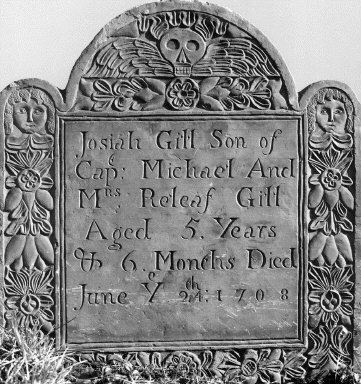 Josiah Gill Son of
Capᵗ: Michael And
Mʳˢ: Releaf Gill
Aged 5. Years
& 6. Months Died
June Yᵉ 24ᵗʰ: 1708